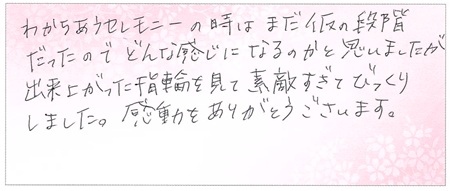 わかちあうセレモニーの時は まだ仮の段階
だったので どんな感じになるのかと思いましたが
出来上がった指輪を見て 素敵すぎて びっくり
しました。感動を ありがとうございます。